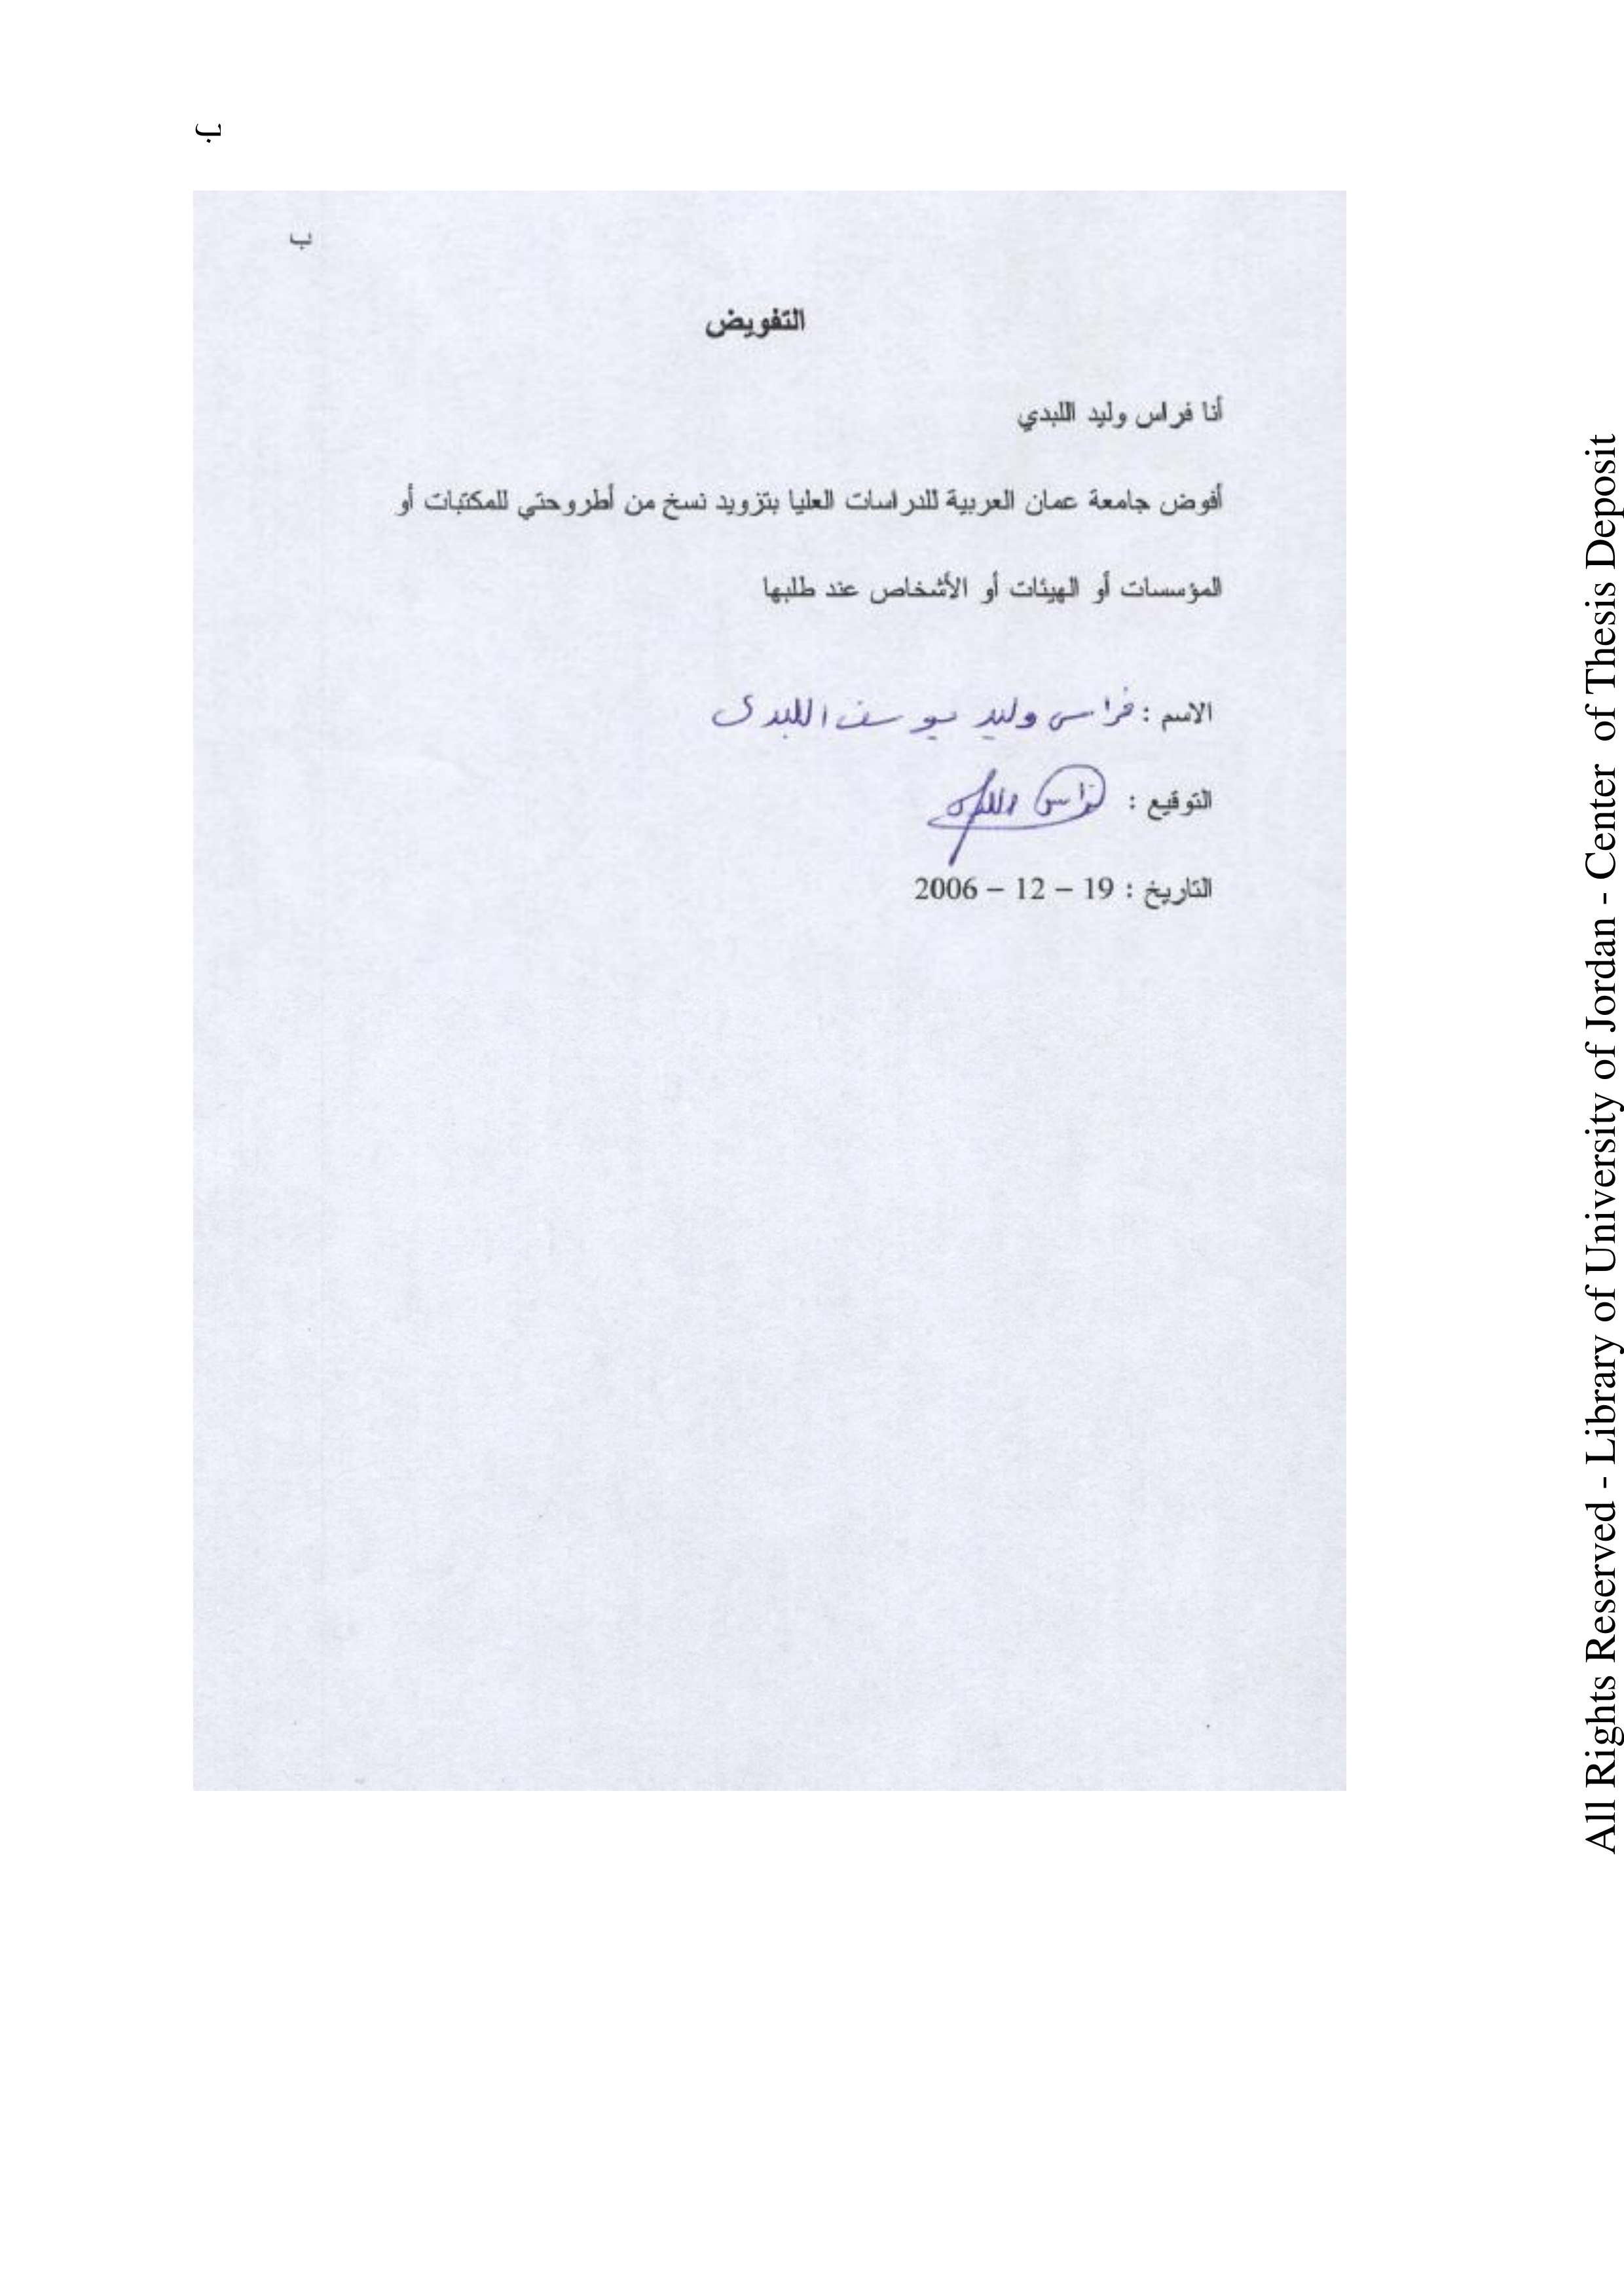 ب
ب
التفويض
أنا فراس وليد اللبدي
أفوض جامعة عمان العربية للدراسات العليا بتزويد نسخ من أطروحتي للمكتبات أو
المؤسسات أو الهيئات أو الأشخاص عند طلبها
الاسم : فراس وليد يوسف اللبدي
التوقيع : فراس اللبدي
التاريخ : 19 – 12 – 2006
All Rights Reserved - Library of University of Jordan - Center of Thesis Deposit